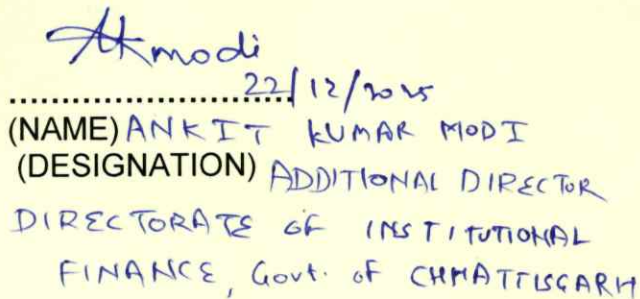 Akmodi
22/12/2025
(NAME) ANKIT KUMAR MODI
(DESIGNATION) ADDITIONAL DIRECTOR
DIRECTORATE OF INSTITUTIONAL
FINANCE, Govt. of CHHATTISGARH